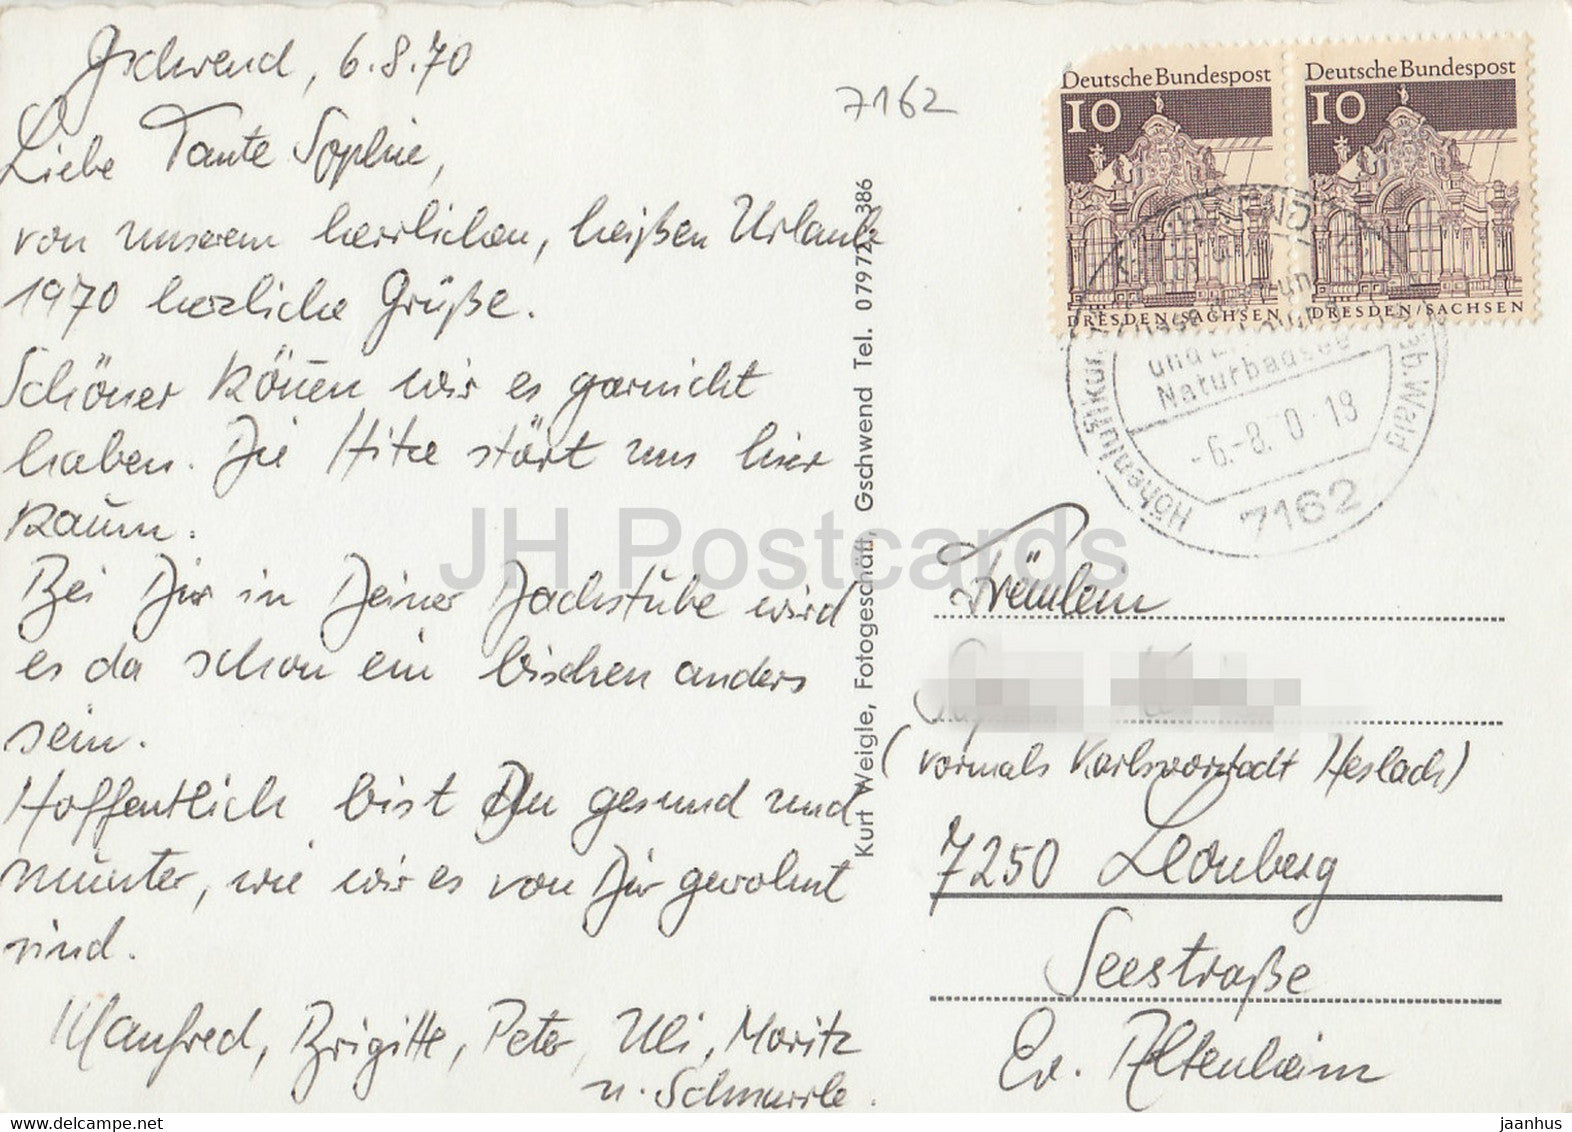 Gschwend, 6.8.70
Liebe Tante Sophie,
von unserem herrlichen, heißen Urlaub
1970 herzliche Grüße.
Schöner können wir es garnicht
haben. Die Hitze stört uns hier
kaum.
Bei Dir in Deiner Dachstube wird
es da schon ein bischen anders
sein.
Hoffentlich bist Du gesund und
munter, wie wir es von Dir gewohnt
sind.
Manfred, Brigitte, Peter, Uli, Moritz
u. Schnurrle.
Kurt Weigle, Fotogeschäft, Gschwend Tel. 07972/386
7162
Deutsche Bundespost
10
DRESDEN/SACHSEN
Deutsche Bundespost
10
DRESDEN/SACHSEN
Höhenluftkur
und
Naturbadesee
-6.-8.70-18
7162
äb. Wald
Fräulein
(vormals Karlsvorstadt Heslach)
7250 Leonberg
Seestraße
Ev. Altenheim
JH Postcards
delcampe.net
jaanhus